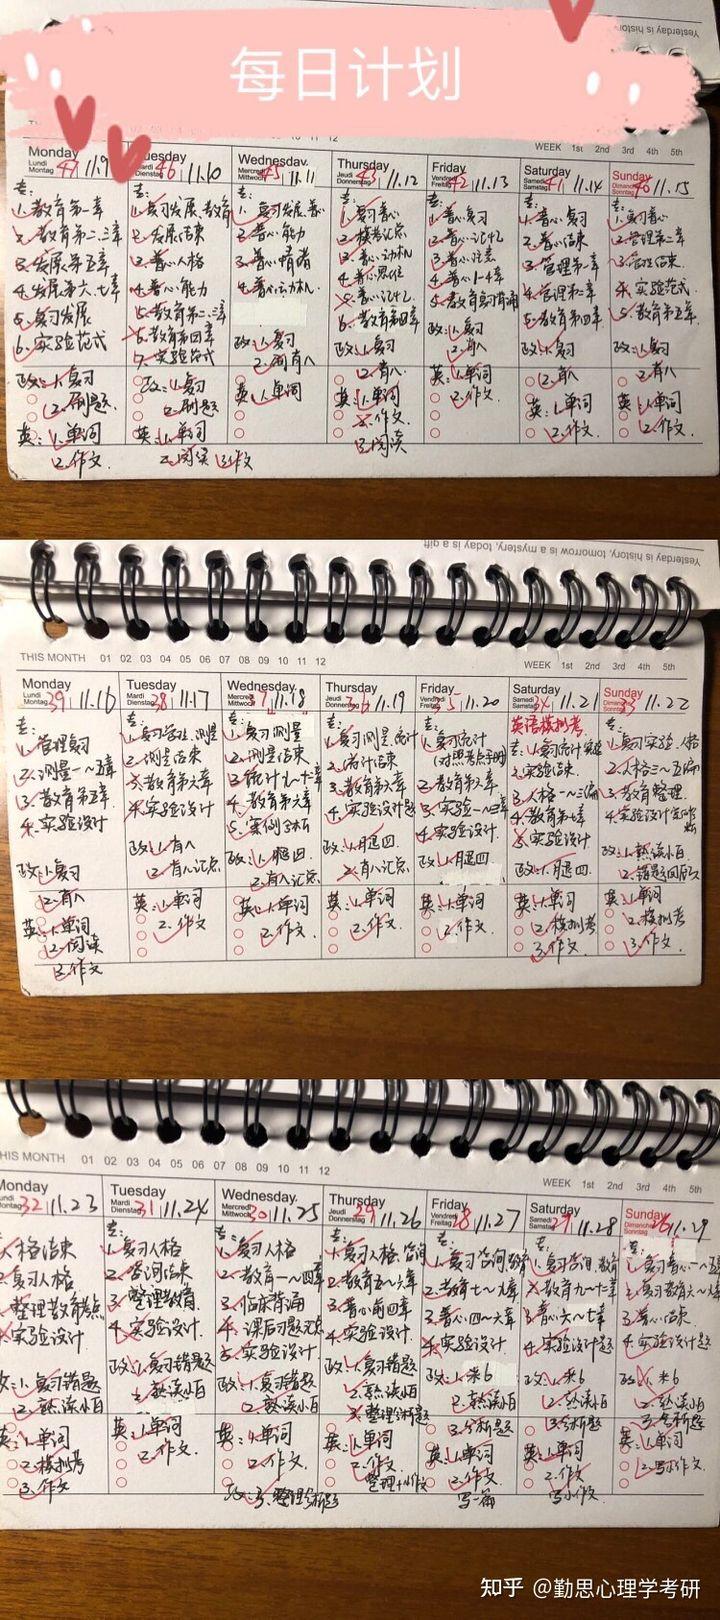 每日计划
Yesterday is history
WEEK 1st 2nd 3rd 4th 5th
Monday
Lundi
Montag 47 11.9
专:
1. 教育第一章
2. 教育第二、三章
3. 发展第五章
4. 发展第六、七章
5. 复习发展
6. 实验范式
政: 1. 复习
2. 刷题
英: 1. 单词
2. 作文
Tuesday
Mardi
Dienstag 46 11.10
专:
1. 复习发展、教育
2. 发展结束
3. 普心人格
4. 普心能力
5. 教育第二、三章
6. 教育第四章
7. 实验范式
政: 1. 复习
2. 刷题
英: 1. 单词
2. 阅读 3. 作文
Wednesday
Mercredi
Mittwoch 45 11.11
专:
1. 复习发展、普心
2. 普心能力
3. 普心情绪
4. 普心动机
政: 1. 复习
英: 1. 单词
Thursday
Jeudi
Donnerstag 43 11.12
专:
1. 复习普心
2. 模考记忘
3. 普心动机
4. 普心思维
5. 普心记忆
6. 教育第四章
政: 1. 复习
2. 有八
英: 1. 单词
2. 作文
3. 阅读
Friday
Vendredi
Freitag 42 11.13
专:
1. 普心复习
2. 普心记忆
3. 普心注意
4. 普心1-4章
5. 教育复习背诵
政: 1. 复习
2. 有八
英: 1. 单词
2. 作文
Saturday
Samedi
Samstag 41 11.14
专:
1. 普心复习
2. 普心结束
3. 管理第一章
4. 管理第二章
5. 教育第四章
政: 1. 复习
2. 有八
英: 1. 单词
2. 作文
Sunday
Dimanche
Sonntag 40 11.15
专:
1. 复习普心
2. 管理第二章
3. 管理结束
4. 实验范式
5. 教育第五章
政: 1. 复习
2. 有八
英: 1. 单词
2. 作文
Yesterday is history, tomorrow is a mystery, today is a gift
THIS MONTH 01 02 03 04 05 06 07 08 09 10 11 12
WEEK 1st 2nd 3rd 4th 5th
Monday
Lundi
Montag 39 11.16
专:
1. 管理复习
2. 测量一~五章
3. 教育第五章
4. 实验设计
政: 1. 复习
2. 有八
英: 1. 单词
2. 阅读
3. 作文
Tuesday
Mardi
Dienstag 38 11.17
专:
1. 复习管理、测量
2. 测量结束
3. 教育第六章
4. 实验设计
政: 1. 有八
2. 有八记忘
英: 1. 单词
2. 作文
Wednesday
Mercredi
Mittwoch 37 11.18
专:
1. 复习测量
2. 测量结束
4. 教育第六章
政: 1. 腿四
2. 有八记忘
英: 1. 单词
2. 作文
Thursday
Jeudi
Donnerstag 36 11.19
专:
1. 复习测量、统计
2. 统计结束
3. 教育第六章
4. 实验设计题
政: 1. 腿四
2. 有八记忘
英: 1. 单词
2. 作文
Friday
Vendredi
Freitag 35 11.20
专:
1. 复习统计
2. 教育第六章
3. 实验一~三章
4. 实验设计
政: 1. 腿四
英: 1. 单词
2. 作文
Saturday
Samedi
Samstag 34 11.21
英语模拟考
专: 1. 复习统计、实验
2. 实验结束
3. 人格一~三编
4. 教育第七章
5. 实验设计
政: 1. 腿四
英: 1. 单词
2. 模拟考
3. 作文
Sunday
Dimanche
Sonntag 33 11.22
专:
1. 复习实验、人格
2. 人格三~五编
3. 教育整理
政: 1. 熟读小白
英: 1. 单词
2. 模拟考
3. 作文
THIS MONTH 01 02 03 04 05 06 07 08 09 10 11 12
WEEK 1st 2nd 3rd 4th 5th
Monday
Montag 32 11.23
人格结束
复习人格
整理教育
实验设计
1. 复习错题
2. 熟读小白
英: 1. 单词
2. 模拟考
3. 作文
Tuesday
Mardi
Dienstag 31 11.24
专:
1. 复习人格
2. 咨询结束
3. 整理教育
4. 实验设计
政: 1. 复习错题
2. 熟读小白
英: 1. 单词
2. 作文
Wednesday
Mercredi
Mittwoch 30 11.25
专:
1. 复习人格
2. 教育一~四章
3. 临床背诵
5. 实验设计
政: 1. 复习错题
2. 熟读小白
英: 1. 单词
2. 作文
政: 3. 整理分析题
Thursday
Jeudi
Donnerstag 29 11.26
专:
1. 复习人格、咨询
2. 教育五~六章
3. 普心前四章
4. 实验设计
政: 1. 复习错题
2. 熟读小白
3. 整理分析题
英: 1. 单词
2. 作文
整理小作文
Friday
Vendredi
Freitag 28 11.27
专:
1. 复习咨询、教育
2. 教育七~九章
3. 普心四~六章
4. 实验设计
政: 1. 米6
2. 熟读小白
3. 分析题
英: 1. 单词
2. 作文
写一篇
Saturday
Samedi
Samstag 27 11.28
专:
1. 复习咨询、教育
2. 教育九~十章
3. 普心六~七章
4. 实验设计题
政: 1. 米6
2. 熟读小白
3. 分析题
英: 1. 单词
2. 作文
写小作文
Sunday
Dimanche
Sonntag 26 11.29
专:
1. 复习普心一~五章
2. 复习教育六~九章
3. 普心结束
4. 实验设计题
政: 1. 米6
2. 熟读小白
3. 分析题
英: 1. 单词
2. 写小作文
知乎 @勤思心理学考研